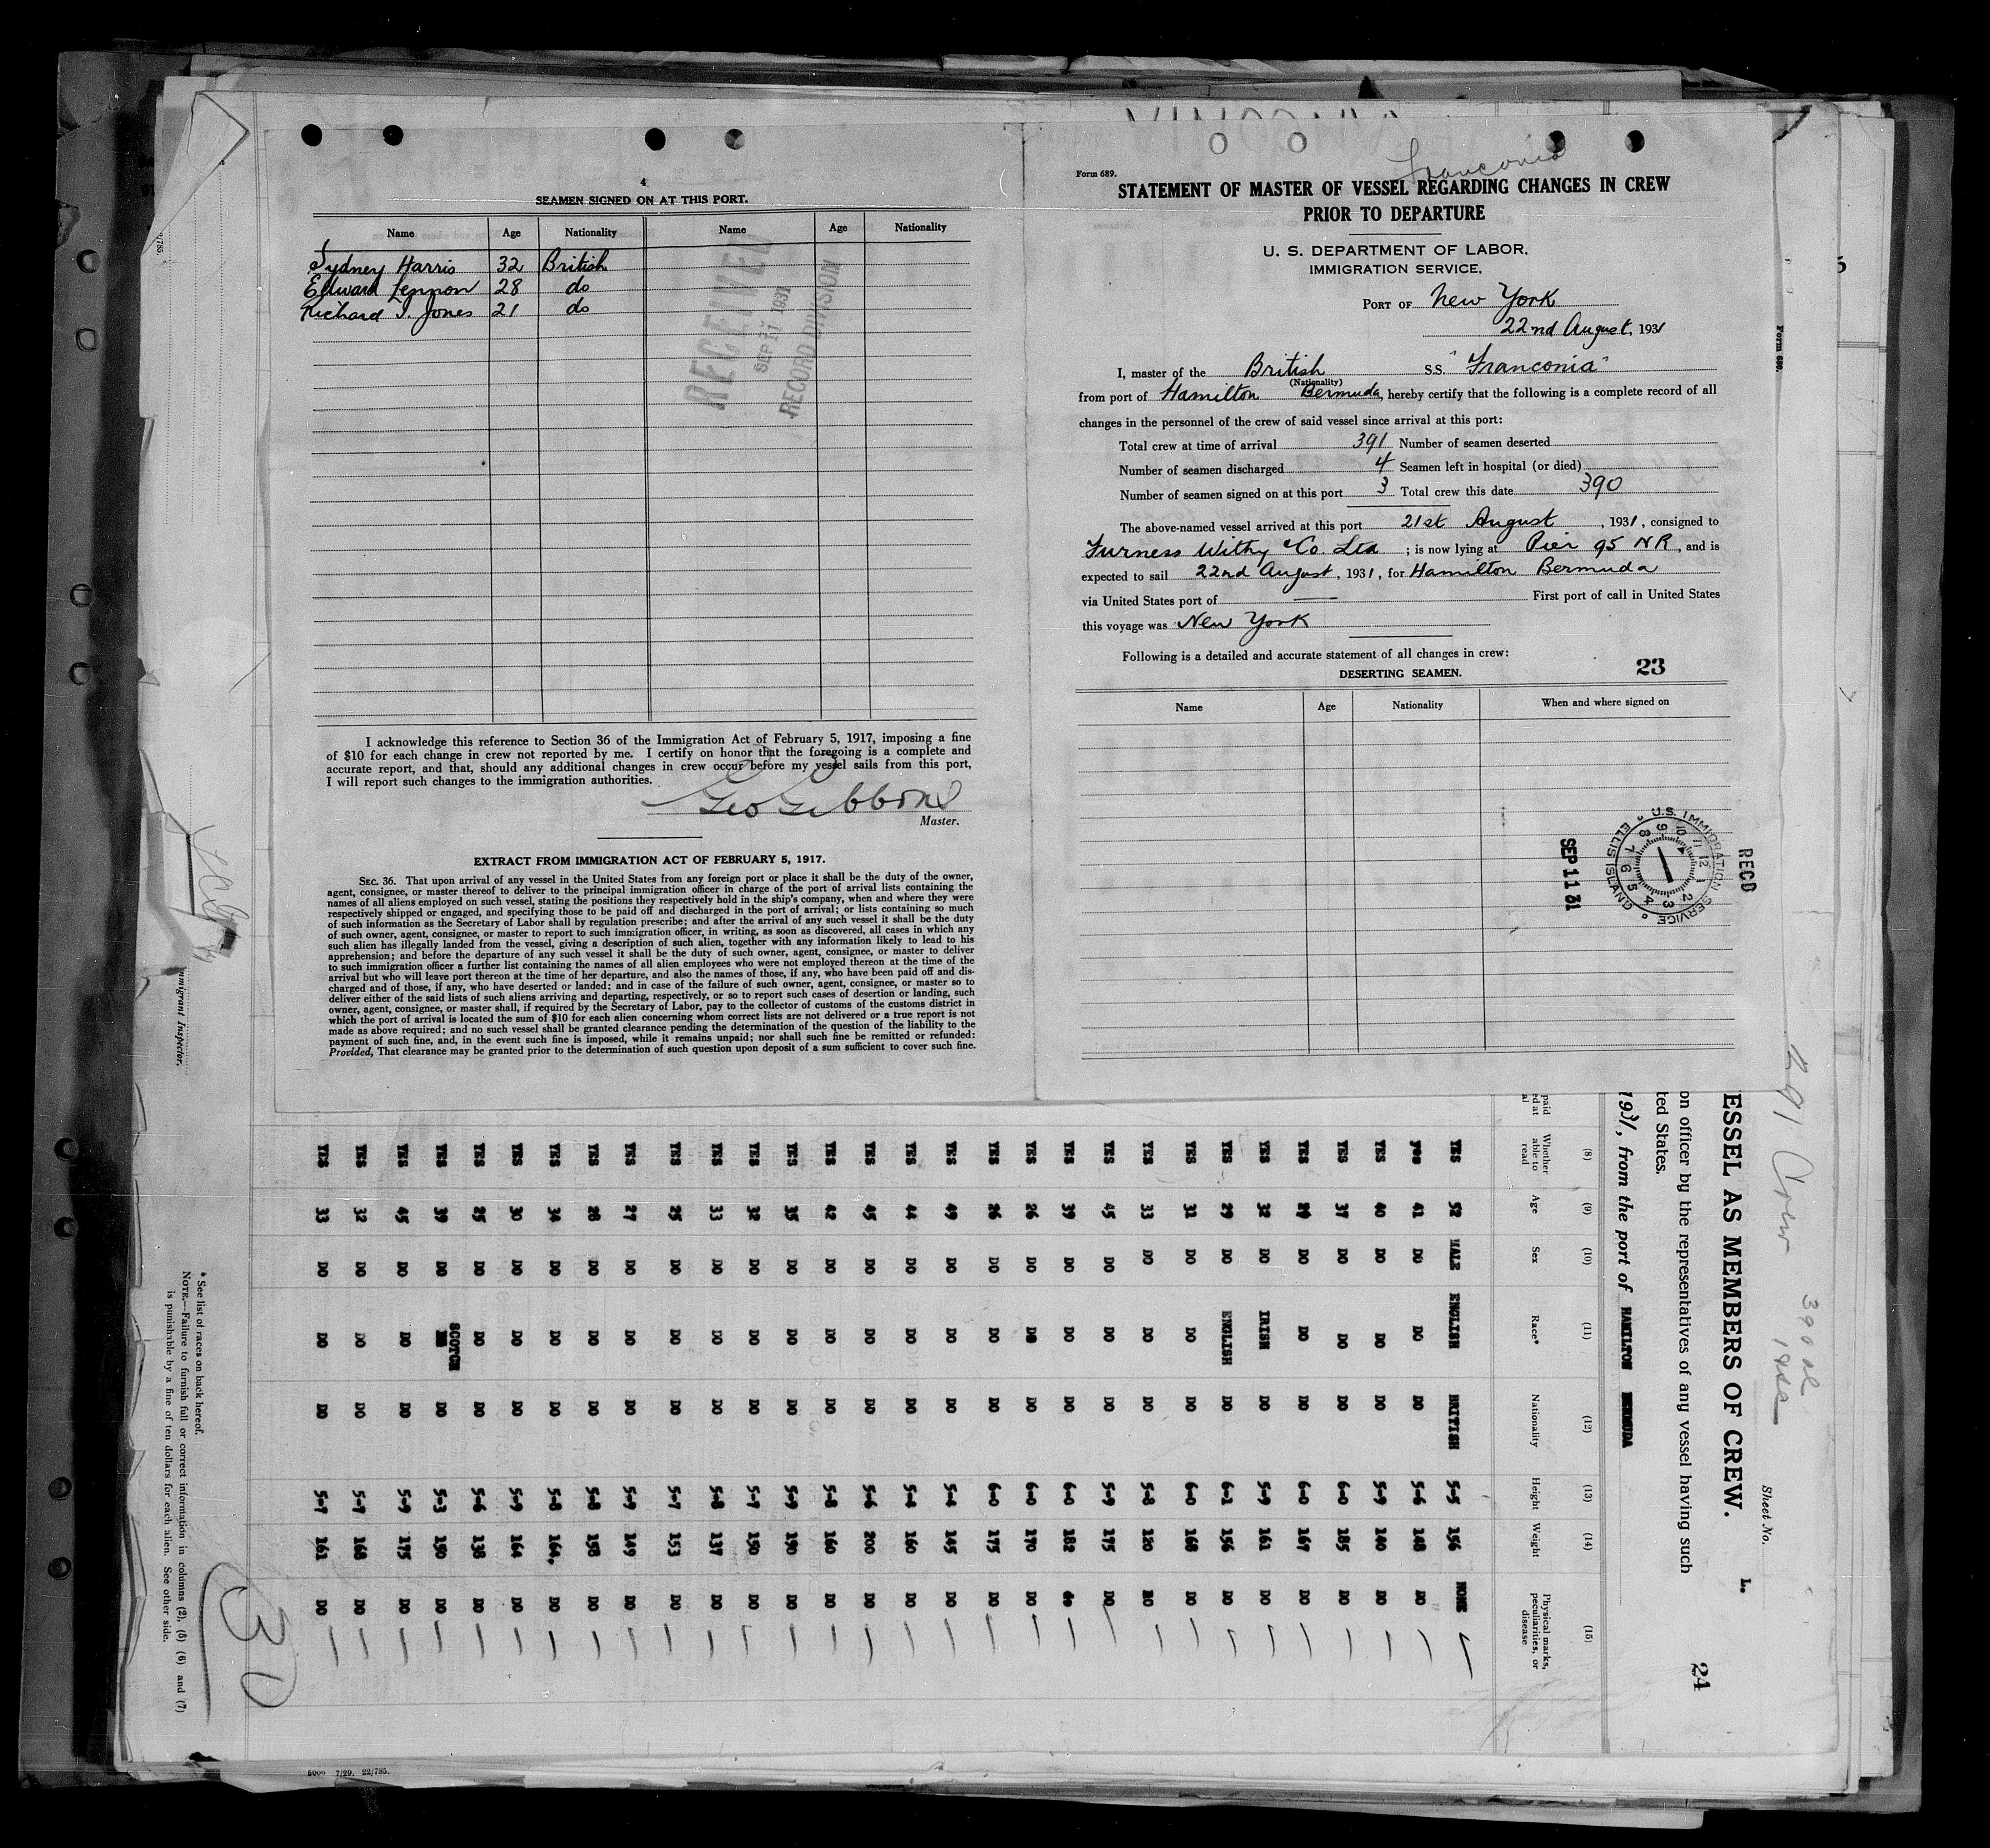 4
SEAMEN SIGNED ON AT THIS PORT.
Name Age Nationality Name Age Nationality
Sydney Harris 32 British
Edward Lennon 28 do
Richard I. Jones 21 do
RECEIVED
SEP 11 1931
RECORD DIVISION
I acknowledge this reference to Section 36 of the Immigration Act of February 5, 1917, imposing a fine
of $10 for each change in crew not reported by me. I certify on honor that the foregoing is a complete and
accurate report, and that, should any additional changes in crew occur before my vessel sails from this port,
I will report such changes to the immigration authorities.
Geo Gibbons
Master.
EXTRACT FROM IMMIGRATION ACT OF FEBRUARY 5, 1917.
SEC. 36. That upon arrival of any vessel in the United States from any foreign port or place it shall be the duty of the owner,
agent, consignee, or master thereof to deliver to the principal immigration officer in charge of the port of arrival lists containing the
names of all aliens employed on such vessel, stating the positions they respectively hold in the ship's company, when and where they were
respectively shipped or engaged, and specifying those to be paid off and discharged in the port of arrival; or lists containing so much
of such information as the Secretary of Labor shall by regulation prescribe; and after the arrival of any such vessel it shall be the duty
of such owner, agent, consignee, or master to report to such immigration officer, in writing, as soon as discovered, all cases in which any
such alien has illegally landed from the vessel, giving a description of such alien, together with any information likely to lead to his
apprehension; and before the departure of any such vessel it shall be the duty of such owner, agent, consignee, or master to deliver
to such immigration officer a further list containing the names of all alien employees who were not employed thereon at the time of the
arrival but who will leave port thereon at the time of her departure, and also the names of those, if any, who have been paid off and dis-
charged and of those, if any, who have deserted or landed; and in case of the failure of such owner, agent, consignee, or master so to
deliver either of the said lists of such aliens arriving and departing, respectively, or so to report such cases of desertion or landing, such
owner, agent, consignee, or master shall, if required by the Secretary of Labor, pay to the collector of customs of the customs district in
which the port of arrival is located the sum of $10 for each alien concerning whom correct lists are not delivered or a true report is not
made as above required; and no such vessel shall be granted clearance pending the determination of the question of the liability to the
payment of such fine, and, in the event such fine is imposed, while it remains unpaid; nor shall such fine be remitted or refunded:
Provided, That clearance may be granted prior to the determination of such question upon deposit of a sum sufficient to cover such fine.
Franconia
Form 689.
STATEMENT OF MASTER OF VESSEL REGARDING CHANGES IN CREW
PRIOR TO DEPARTURE
U. S. DEPARTMENT OF LABOR,
IMMIGRATION SERVICE,
PORT OF New York
22nd August, 1931
I, master of the British S.S. "Franconia"
(Nationality)
from port of Hamilton Bermuda, hereby certify that the following is a complete record of all
changes in the personnel of the crew of said vessel since arrival at this port:
Total crew at time of arrival 391 Number of seamen deserted
Number of seamen discharged 4 Seamen left in hospital (or died)
Number of seamen signed on at this port 3 Total crew this date 390
The above-named vessel arrived at this port 21st August, 1931, consigned to
Furness Withy & Co. Ltd; is now lying at Pier 95 NR, and is
expected to sail 22nd August, 1931, for Hamilton Bermuda
via United States port of — First port of call in United States
this voyage was New York
Following is a detailed and accurate statement of all changes in crew:
23
DESERTING SEAMEN.
Name Age Nationality When and where signed on
RECD
U.S. IMMIGRATION SERVICE
ELLIS ISLAND
SEP 11 31
Form 689.
291 Crew
Sheet No.
L.
24
ESSEL AS MEMBERS OF CREW.
on officer by the representatives of any vessel having such
ted States.
1931, from the port of HAMILTON BERMUDA
(8) (9) (10) (11) (12) (13) (14) (15)
Whether able to read Age Sex Race* Nationality Height Weight Physical marks, peculiarities, or disease
YES 52 MALE ENGLISH BRITISH 5-5 156 NONE
yes 41 DO DO DO 5-6 148 DO
YES 40 DO DO DO 5-9 140 DO
YES 37 DO DO DO 6-0 185 DO
YES DO DO DO 6-0 167 DO
YES 32 DO IRISH DO 5-9 161 DO
YES 29 DO ENGLISH DO 6-1 156 DO
YES 31 DO DO DO 6-0 168 DO
YES 33 DO DO DO 5-8 120 DO
YES 45 DO DO DO 5-9 175 DO
YES 39 DO DO DO 6-0 182 do
YES 26 DO DO DO 6-0 170 DO
YES 26 DO DO DO 6-0 175 DO
YES 49 DO DO DO 5-4 145 DO
YES 44 DO DO DO 5-4 160 DO
YES 45 DO DO DO 5-6 200 DO
YES 42 DO DO DO 5-8 160 DO
YES 35 DO DO DO 5-9 190 DO
YES 32 DO DO DO 5-7 150 DO
YES 33 DO DO DO 5-8 137 DO
YES 25 DO DO DO 5-7 153 DO
YES 27 DO DO DO 5-9 149 DO
YES 28 DO DO DO 5-8 158 DO
YES 34 DO DO DO 5-8 164. DO
YES 30 DO DO DO 5-9 164 DO
YES 25 DO DO DO 5-6 138 DO
YES 39 DO SCOTCH DO 5-3 150 DO
YES 45 DO DO DO 5-9 175 DO
YES 32 DO DO DO 5-7 168 DO
YES 33 DO DO DO 5-7 161 DO
* See list of races on back hereof.
NOTE.—Failure to furnish full or correct information in columns (2), (5) (6) and (7)
is punishable by a fine of ten dollars for each alien. See other side.
30
Immigrant Inspector.
5000 7/29. 22/785.